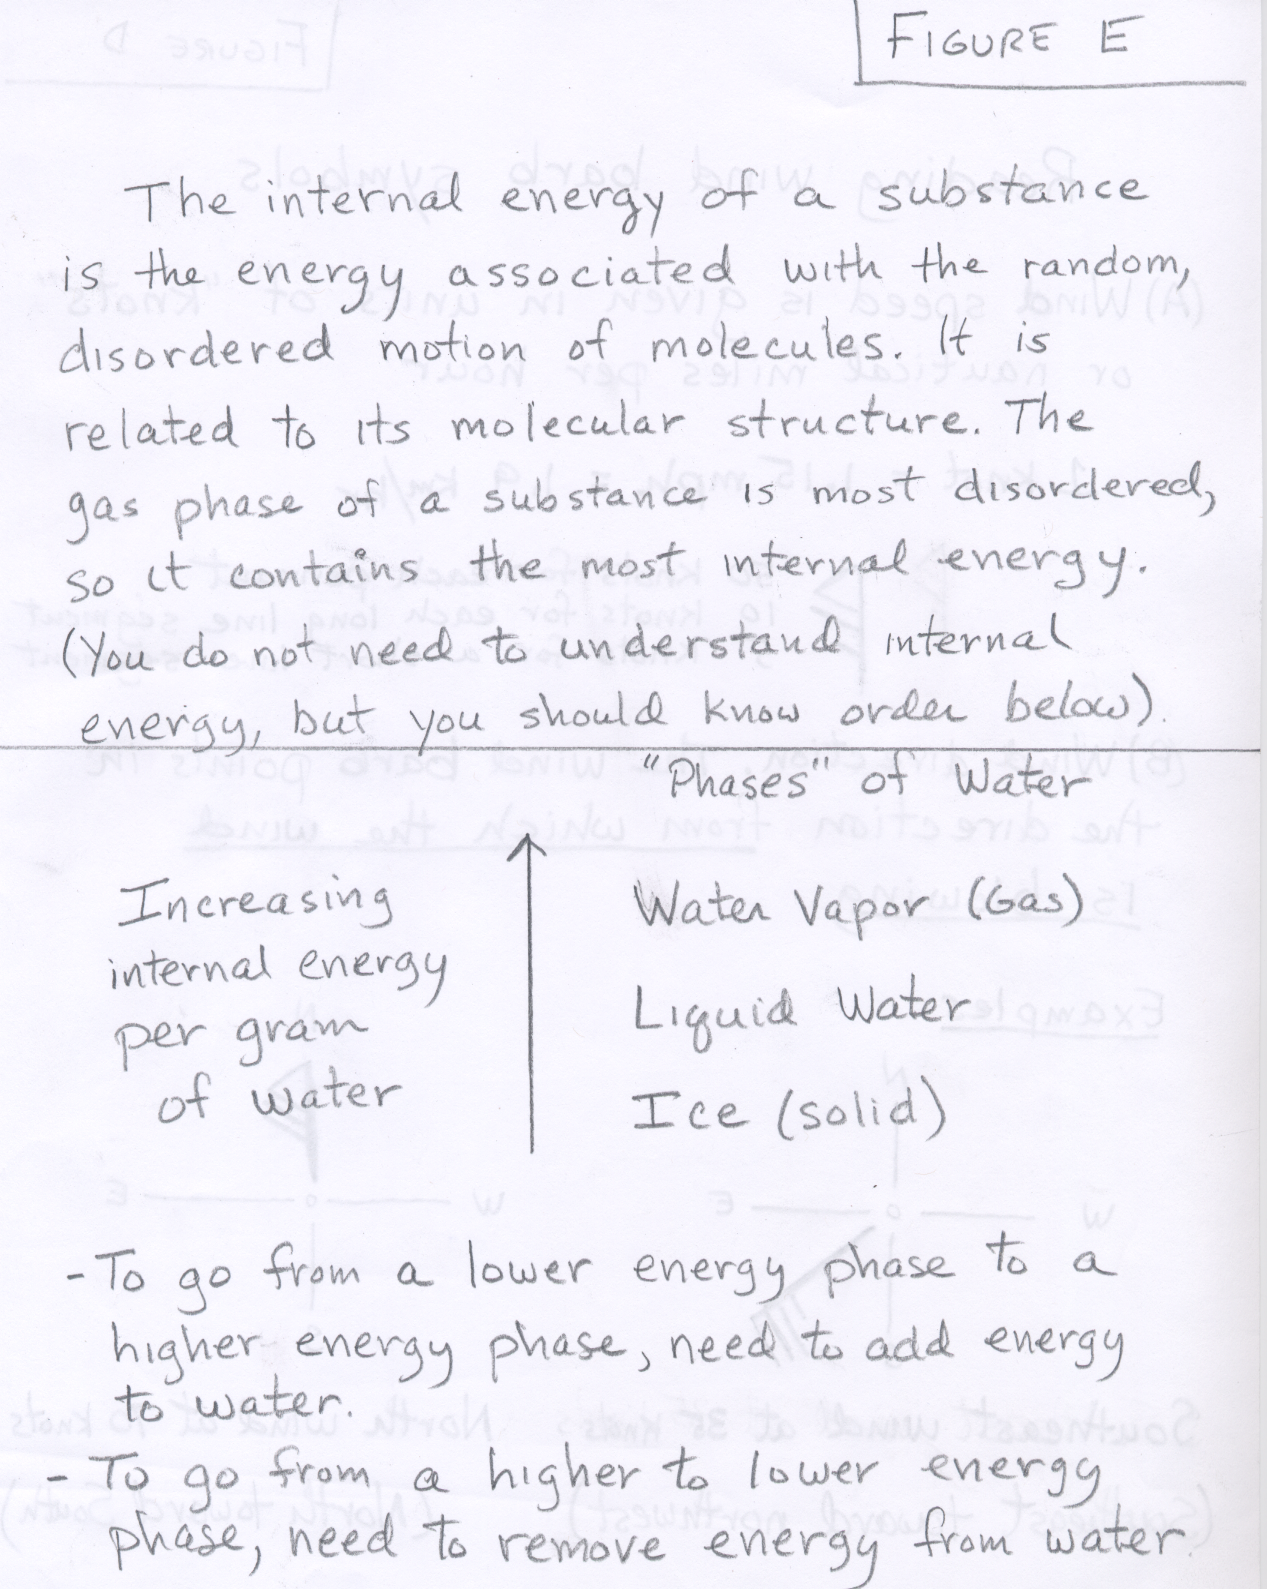 FIGURE E
The internal energy of a substance
is the energy associated with the random,
disordered motion of molecules. It is
related to its molecular structure. The
gas phase of a substance is most disordered,
so it contains the most internal energy.
(You do not need to understand internal
energy, but you should know order below).
"Phases" of Water
Increasing
internal energy
per gram
of water
Water Vapor (Gas)
Liquid Water
Ice (solid)
- To go from a lower energy phase to a
higher energy phase, need to add energy
to water.
- To go from a higher to lower energy
phase, need to remove energy from water.